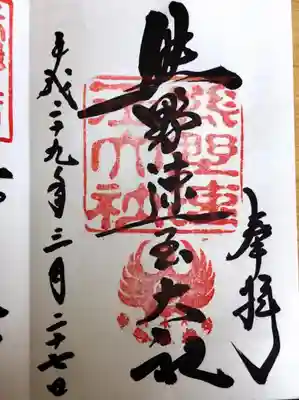 奉拝
熊野速玉大社
熊野速玉大社
平成二十九年三月二十七日